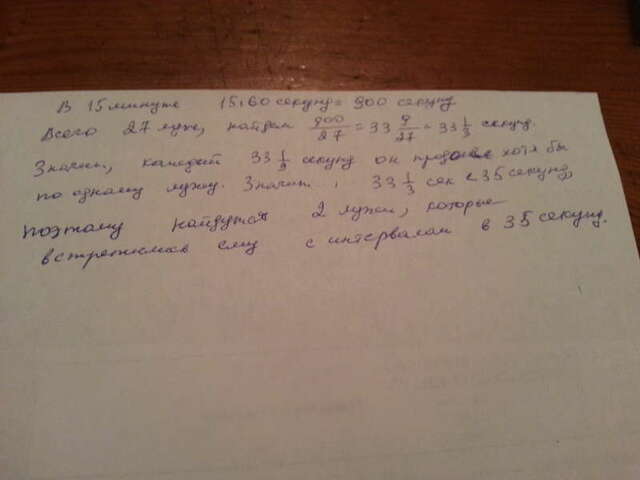 В 15 минуте 15·60 секунд = 900 секунд
Всего 27 луж, найдем 900/27 = 33 9/27 = 33 1/3 секунд.
Значит, каждые 33 1/3 секунд он проделал хотя бы
по одному лужу. Значит..., 33 1/3 сек < 35 секунд,
поэтому найдутся 2 лужи, которые
встретились ему с интервалом в 35 секунд.